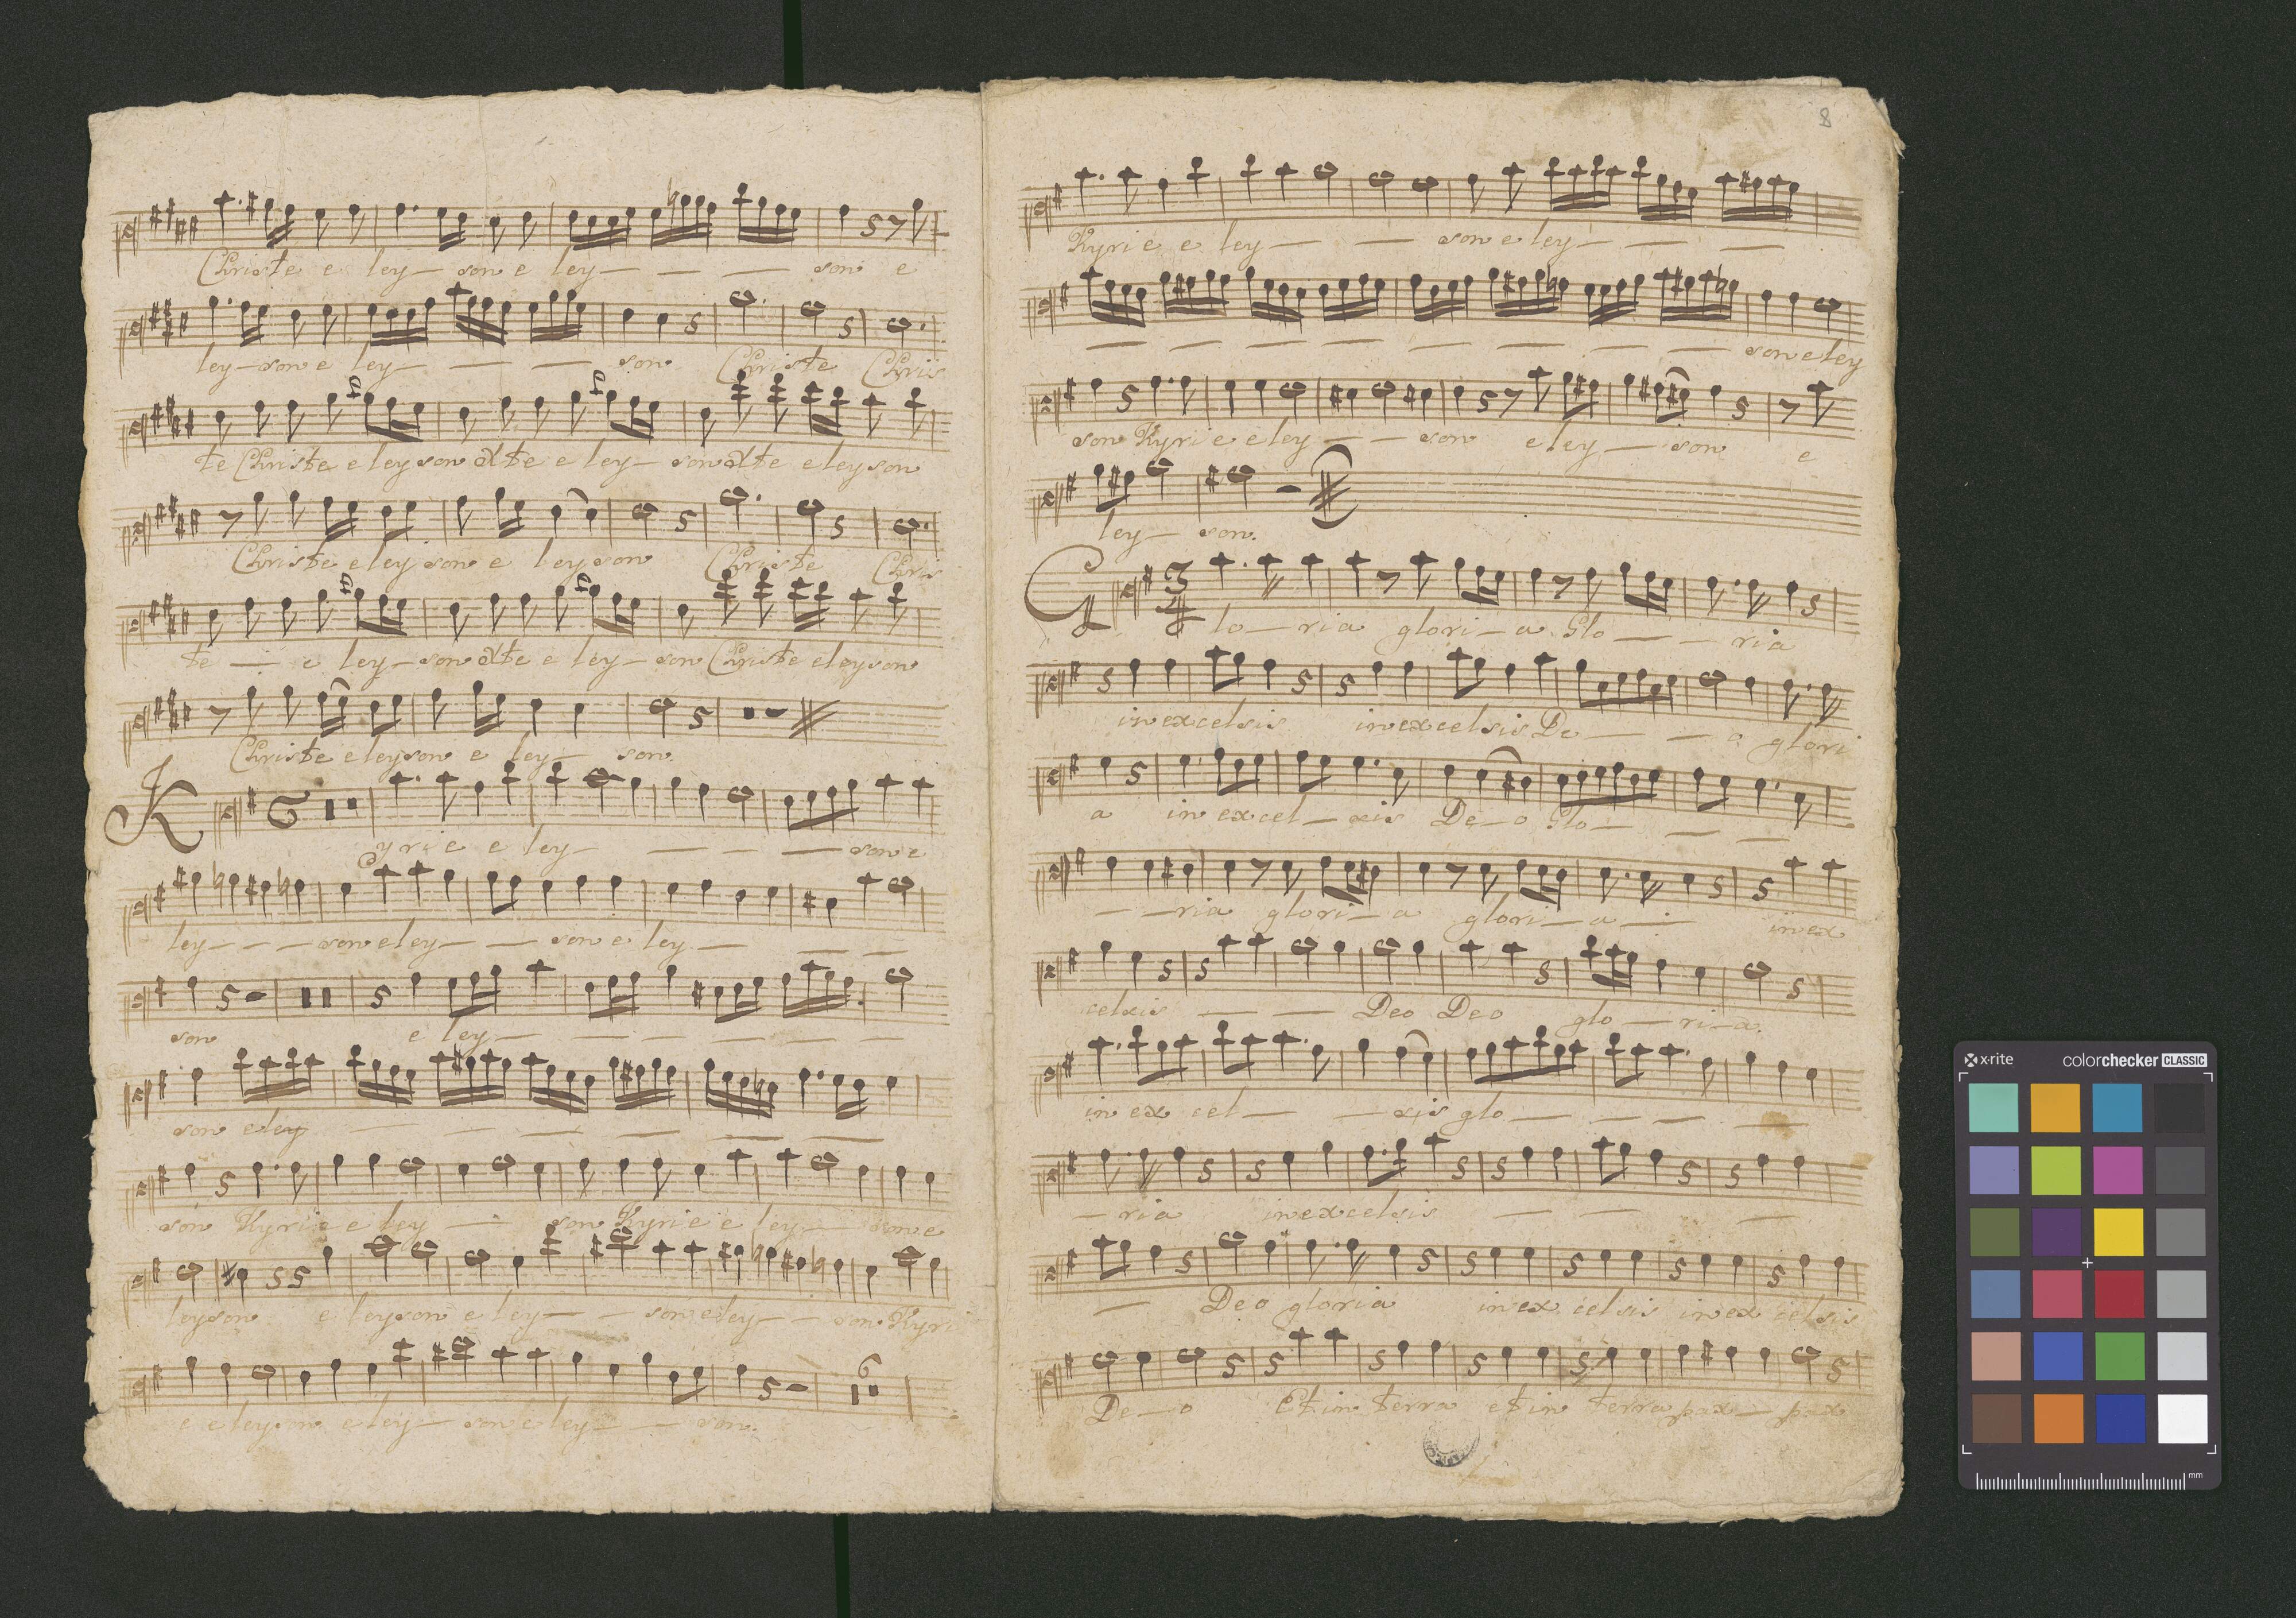 Christe e ley — son e ley — — — son e
ley — son e ley — — — son Christe Chris
te Christe eleyson Xte e ley — son Xte eleyson
Christe eleyson e leyson Christe Chris
te — e ley — son Xte e ley — son Christe eleyson
Christe eleyson e ley — son.
Kyrie e ley — — — — son e
ley — — — son eley — — son e ley — — —
son e ley — — — — — —
son eley — — — — — —
son Kyrie e ley — son Kyrie e ley — son e
leyson e leyson e ley — — son eley — — son Kyri
e eleyson eley — son e ley — — son.
6
8
Kyrie e ley — — son e ley — — —
— — — — — — — — son e ley
son Kyrie e ley — — son e ley — son e
ley — son.
Glo — ria glori — a Glo — — ria
in excelsis in excelsis De — — o glori
a in excel — xis De — o Glo — — —
— — ria glori — a glori — a — in ex
celxis — — Deo Deo glo — ri — a.
in ex cel — — xis glo — — — —
— ria in excelsis — — —
— Deo gloria in ex celsis in ex celsis
De — o Et in terra et in terra pax — pax
x-rite colorchecker CLASSIC
mm